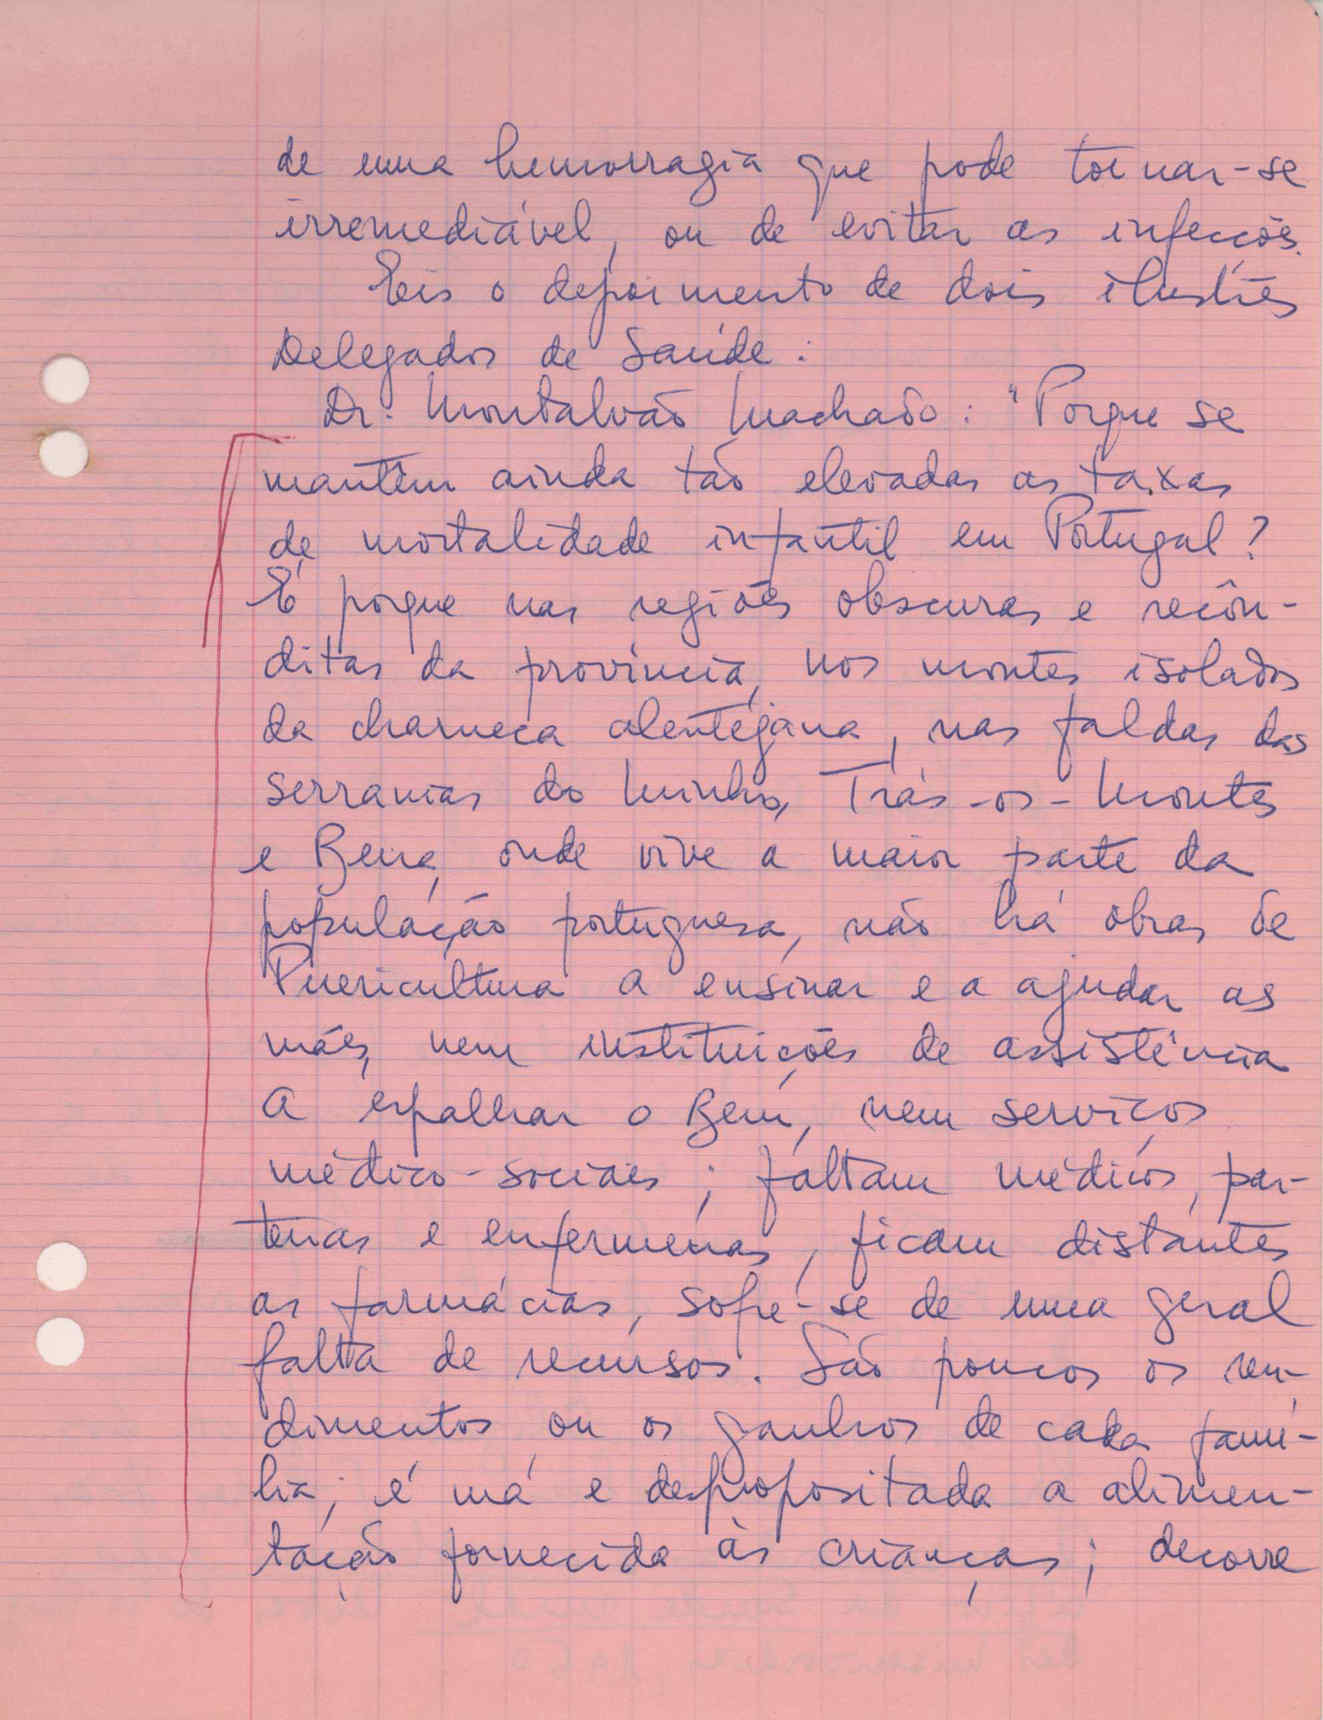 de uma hemorragia que pode tornar-se
irremediável, ou de evitar as infecções.
Eis o depoimento de dois ilustres
Delegados de Saúde:
Dr. Montalvão Machado: "Porque se
mantêm ainda tão elevadas as taxas
de mortalidade infantil em Portugal?
É porque nas regiões obscuras e recôn-
ditas da província, nos montes isolados
da charneca alentejana, nas faldas das
serranias do Minho, Trás-os-Montes
e Beira, onde vive a maior parte da
população portuguesa, não há obras de
Puericultura a ensinar e a ajudar as
mães, nem instituições de assistência
a espalhar o Bem, nem serviços
médico-sociais; faltam médicos, par-
teiras e enfermeiras, ficam distantes
as farmácias, sofre-se de uma geral
falta de recursos. São poucos os ren-
dimentos ou os ganhos de cada famí-
lia; é má e despropositada a alimen-
tação fornecida às crianças; decorre